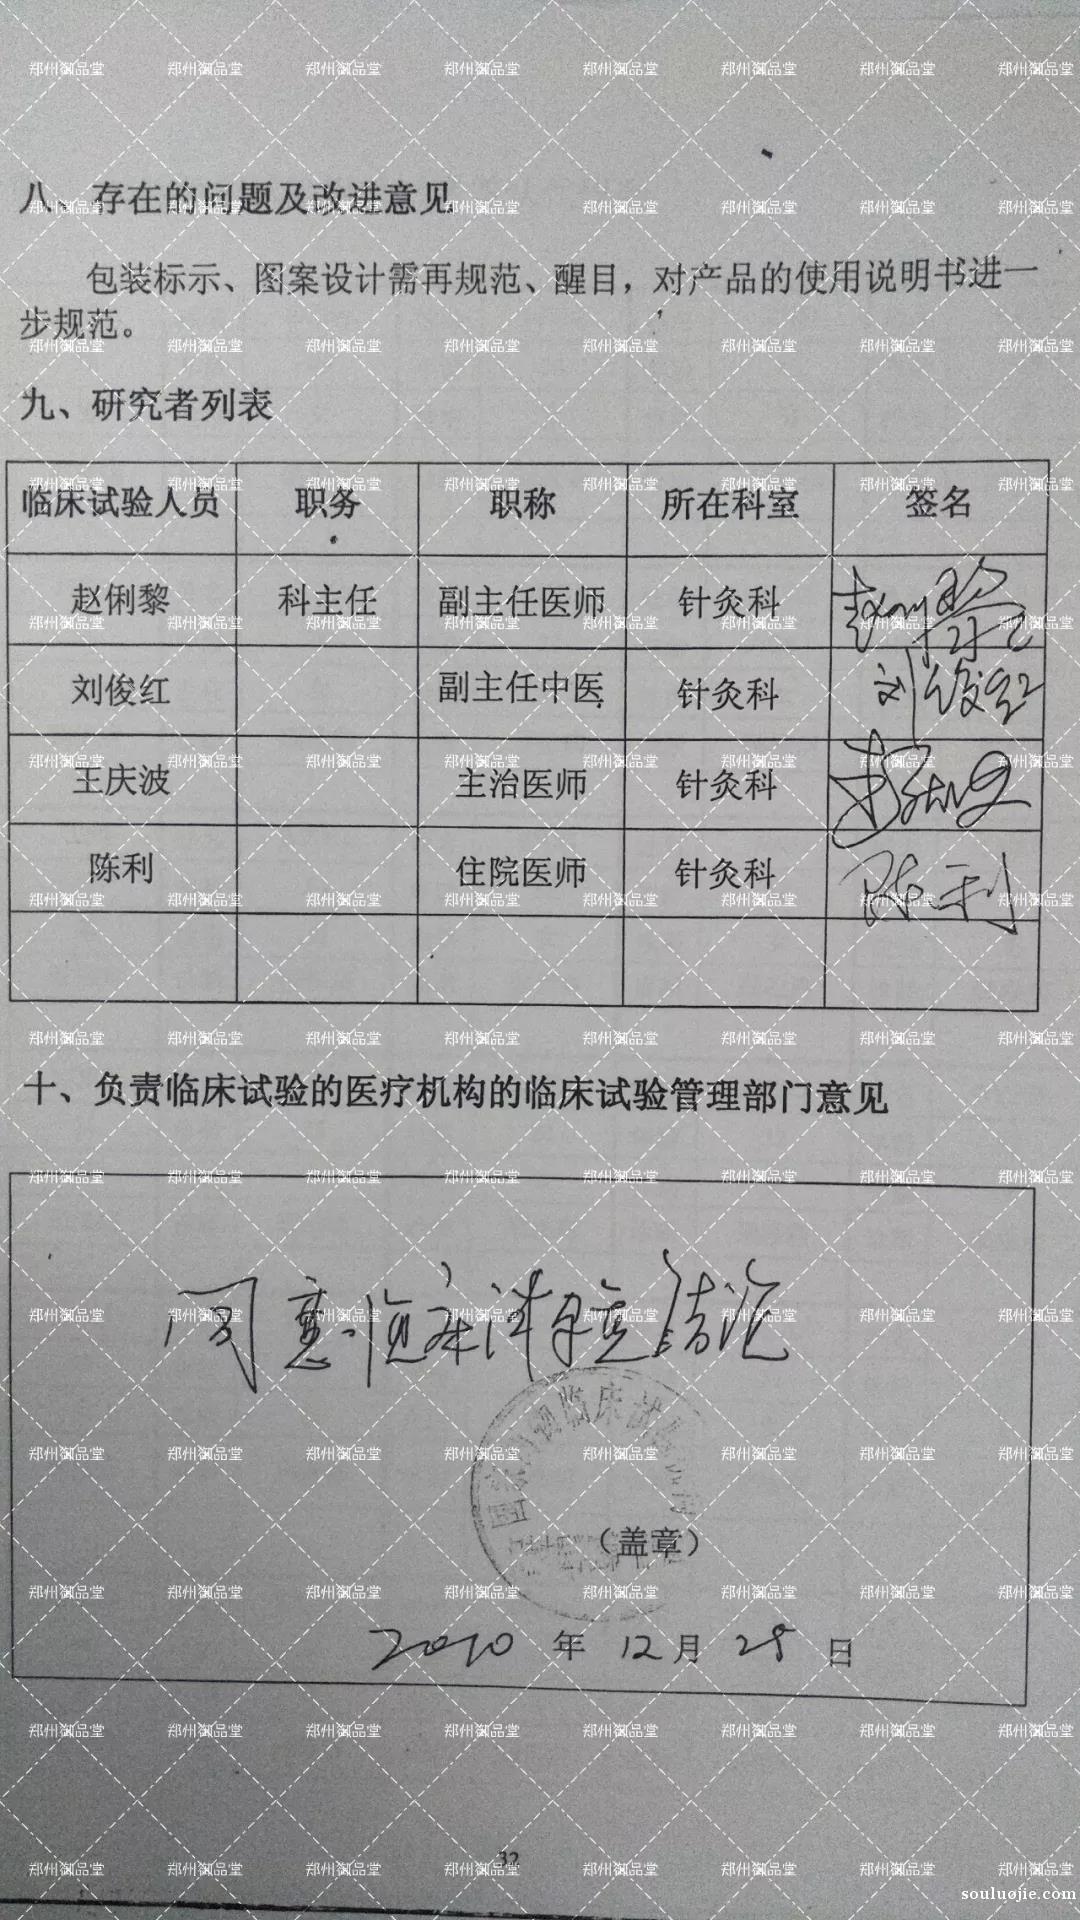 八、存在的问题及改进意见
包装标示、图案设计需再规范、醒目，对产品的使用说明书进一
步规范。
九、研究者列表
临床试验人员 职务 职称 所在科室 签名
赵俐黎 科主任 副主任医师 针灸科 赵俐黎
刘俊红 副主任中医 针灸科 刘俊红
王庆波 主治医师 针灸科
陈利 住院医师 针灸科 陈利
十、负责临床试验的医疗机构的临床试验管理部门意见
同意临床试验结论
临床试
（盖章）
2010 年 12 月 28 日
32
郑州御品堂
souluojie.com